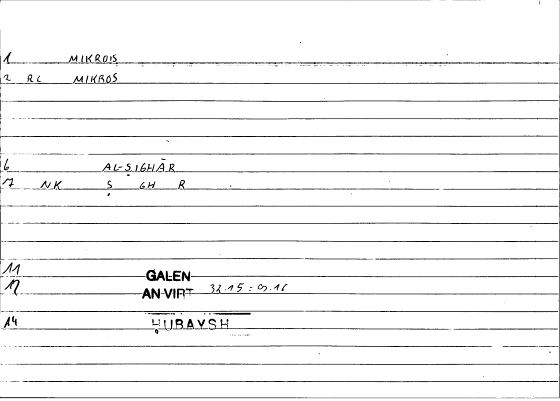 1 MIKROIS
2 RL MIKROS
6 AL-ṢIGHĀR
7 NK Ṣ GH R
11 GALEN
12 AN-VIRT 32.15 =
14 ḤUBAYSH